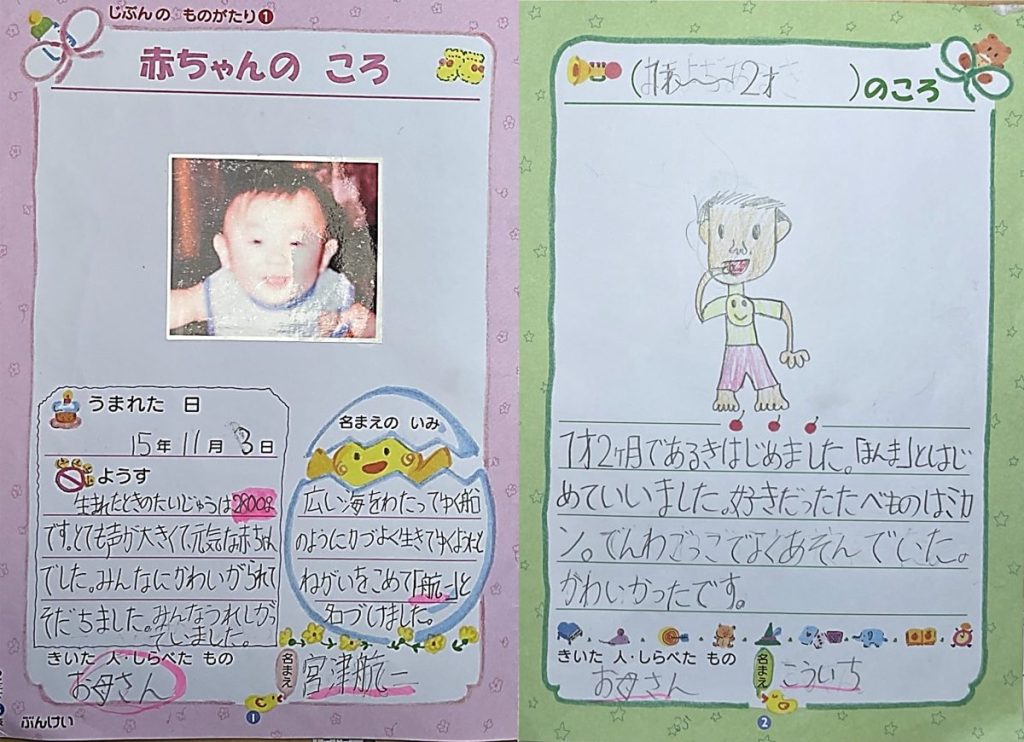 じぶんの ものがたり❶
赤ちゃんの ころ
うまれた 日
15年 11月 3日
ようす
生まれたときのたいじゅうは2800g
です。とても声が大きくて元気な赤ちゃん
でした。みんなにかわいがられて
そだちました。みんなうれしがっ
ていました。
名まえの いみ
広い海をわたってゆく船
のように力づよく生きてゆくようにと
ねがいをこめて「航一」と
名づけました。
きいた 人・しらべた もの
お母さん
名まえ
宮津航一
1
ぶんけい
(1才〜2才 )のころ
1才2ヶ月であるきはじめました。「まんま」とはじ
めていいました。好きだったたべものはミカ
ン。でんわごっこでよくあそんでいた。
かわいかったです。
きいた 人・しらべた もの
お母さん
名まえ
こういち
2